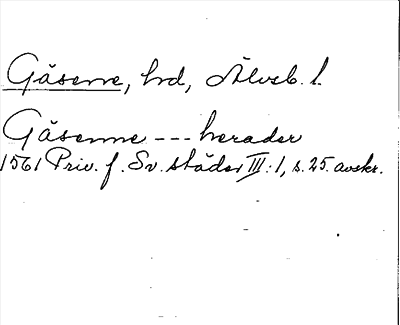 Gäsene, hd, Älvsb. l.
Gäsenne --- herader
1561 Priv. f. Sv. städer III:1, s. 25. avskr.